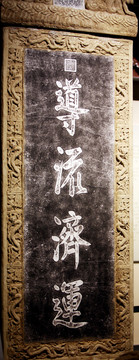 導流濟運